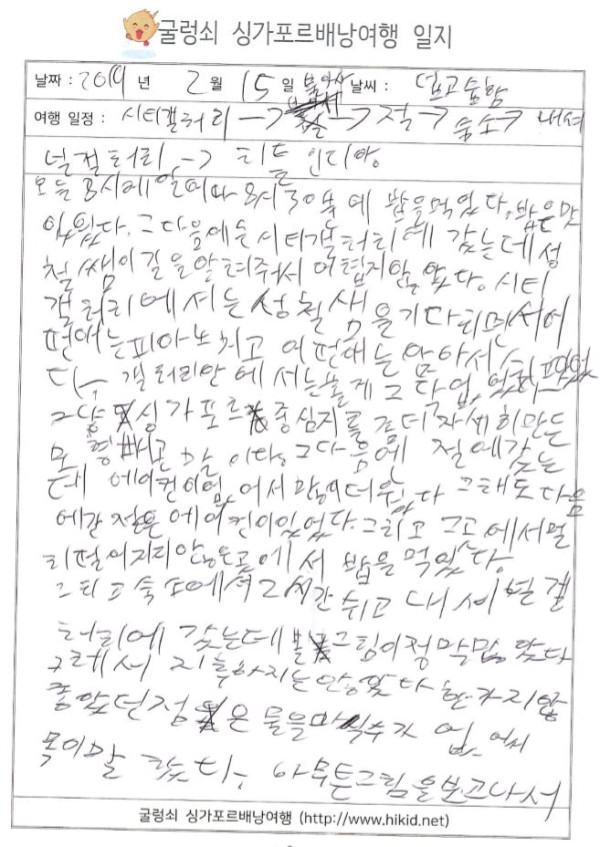 굴렁쇠 싱가포르배낭여행 일지
날짜 : 2019 년 2 월 15 일 날씨 : 덥고 습함
여행 일정 : 시티갤러리 → 절 → 숙소 → 내셔
널갤러리 → 리틀인디아
오늘 8시에 일어나 8시 30분에 밥을먹었다. 밥은맛
있었다. 그 다음에는 시티갤러리에 갔는데 성
철쌤이 길을알려주셔서 어렵지않았다. 시티
갤러리에서는 성철쌤을 기다리면서 어
떤애는 피아노치고 어떤애는 앉아서
다. 갤러리안에서는 볼게 그닥 없었고
그냥 싱가포르 중심지를 좀더 자세히만든
모형빼곤 말이다. 그다음에 절에갔는
데 에어컨이없어서 많이더웠다 그래도 다음
에간 절은 에어컨이있었다. 그리고 그곳에서멀
리떨어지지않은곳에서 밥을 먹었다.
그리고 숙소에서 2시간 쉬고 내셔널갤
러리에 갔는데 그림이정말많았다
그래서 지루하지는않았다 한가지안
좋았던점은 물을마실수가 없어서
목이말랐다. 아무튼그림을보고나서
굴렁쇠 싱가포르배낭여행 (http://www.hikid.net)